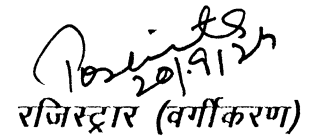 20/9/25
रजिस्ट्रार (वर्गीकरण)